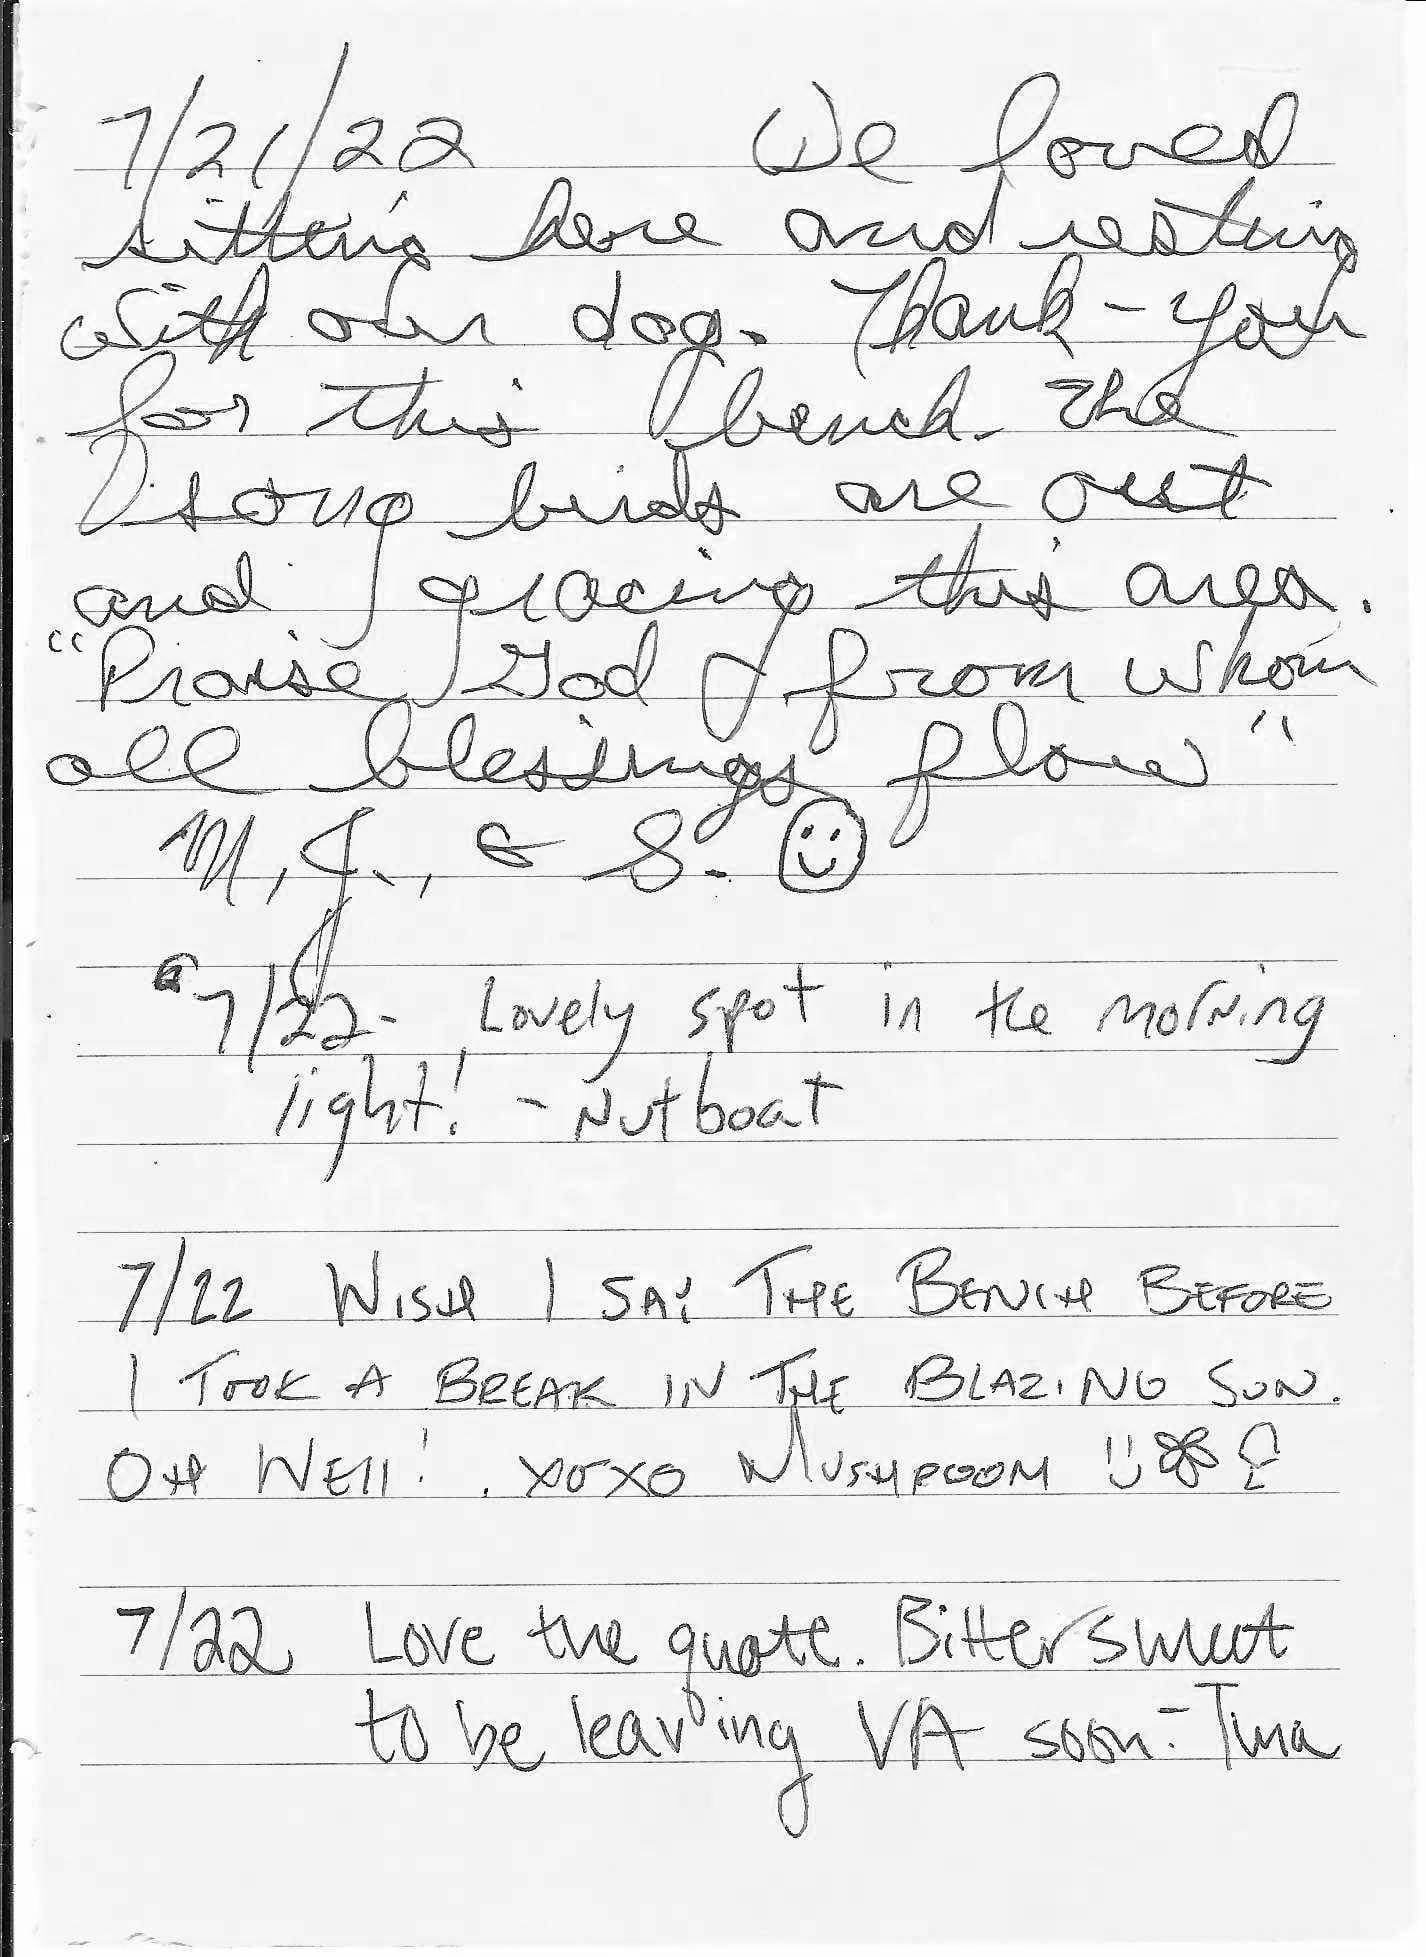 7/21/22 We loved
sitting here and resting
with our dog. Thank-you
for this bench. The
song birds are out
and gracing this area.
"Praise God from whom
all blessings flow"
M, J., & S.
7/22- Lovely spot in the morning
light! - Nutboat
7/22 WISH I THE BENCH BEFORE
I TOOK A BREAK IN THE BLAZING SUN.
OH WELL! . XOXO MUSHROOM
7/22 Love the quote. Bittersweet
to be leaving VA soon. - Tina